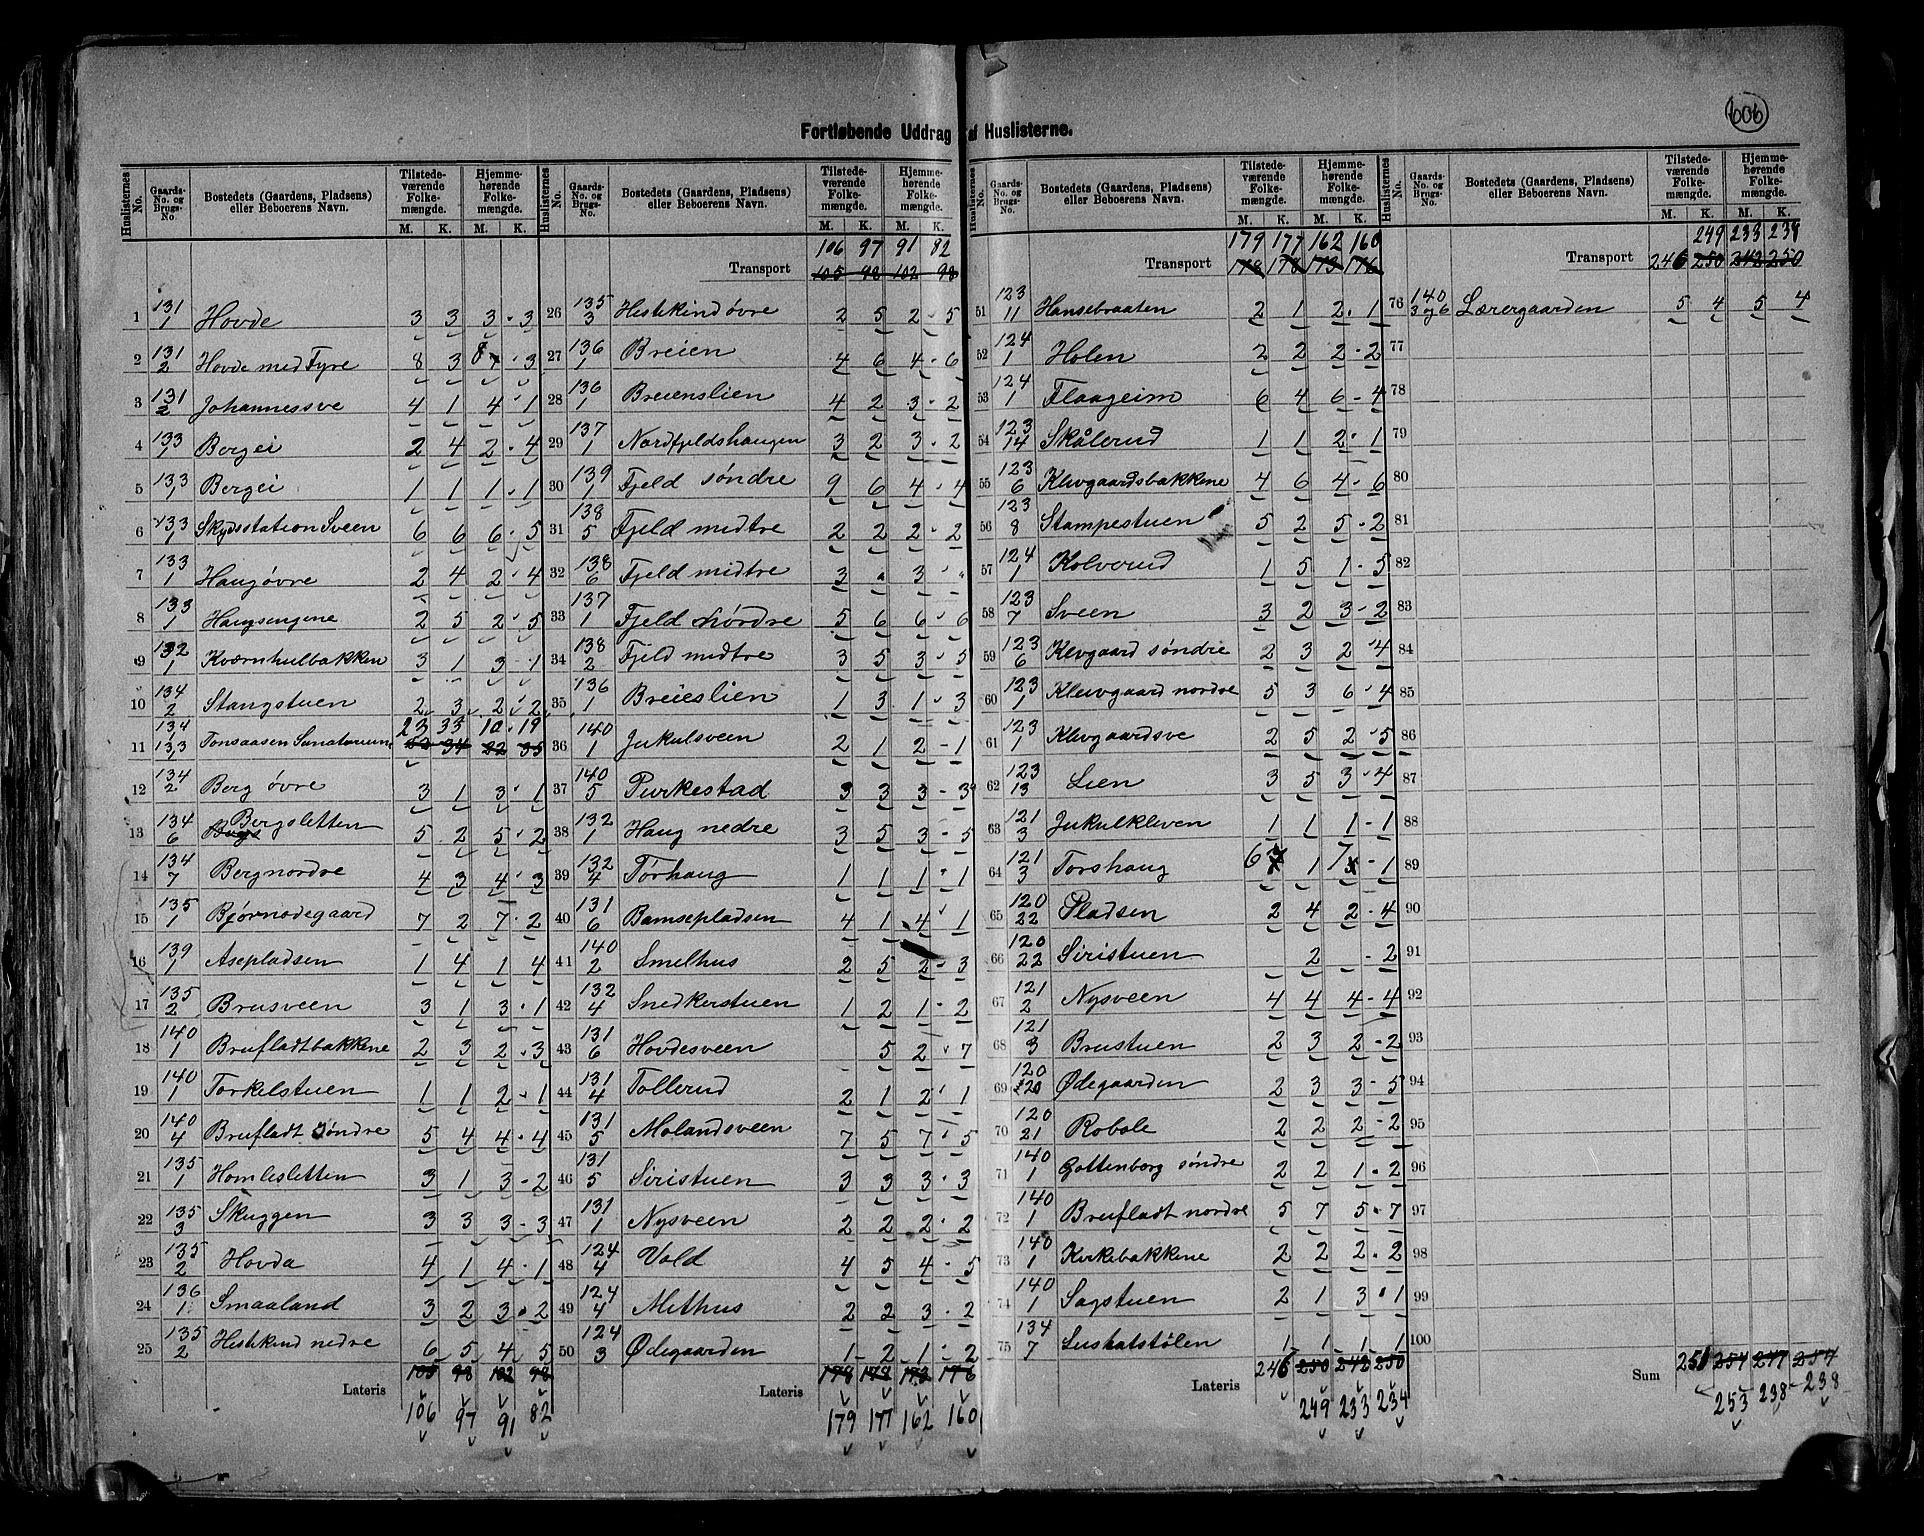 606
Fortløbende Uddrag af Huslisterne.
Huslisternes No. | Gaards-No. og Brugs-No. | Bostedets (Gaardens, Pladsens) eller Beboerens Navn. | Tilstedeværende Folkemængde. M. K. | Hjemmehørende Folkemængde. M. K.
1 131/1 Hovde 3 3 3 3
2 131/2 Hovde med Fyre 8 3 8 3
3 131/2 Johannessve 4 1 4 1
4 133/1 Bergei 2 4 2 4
5 133/1 Bergei 1 1 1 1
6 133/1 Skydsstation Sveen 6 6 6 5
7 133/1 Haug øvre 2 4 2 4
8 133/1 Haugsengene 2 5 2 5
9 132/1 Kværnhulbakken 3 1 3 1
10 134/2 Stangstuen 2 3 2 2
11 134/1 133 Tonsaasen Sanatorium 23 33 10 19
12 134/2 Berg øvre 3 1 3 1
13 134/6 Bergsletten 5 2 5 2
14 134/7 Berg nordre 4 3 4 3
15 135/1 Bjørnødegaard 7 2 7 2
16 139/1 Asepladsen 1 4 1 4
17 135/2 Brusveen 3 1 3 1
18 140/1 Brufladtbakkene 2 3 2 3
19 140/1 Torkelstuen 1 1 2 1
20 140/4 Brufladt søndre 5 4 4 4
21 135/1 Homlesletten 3 1 3 2
22 135/3 Skuggen 3 3 3 3
23 135/2 Hovda 4 1 4 1
24 136/1 Smaaland 3 2 3 2
25 135/2 Hestekind nedre 6 5 4 5
Lateris 105 98 102 98
106 97 91 82
106 97 91 82
Transport 105 98 102 98
26 135/3 Hestekind øvre 2 5 2 5
27 136/1 Breien 4 6 4 6
28 136/1 Breienslien 4 2 3 2
29 137/1 Nordfjeldshaugen 3 2 3 2
30 139/1 Fjeld søndre 9 6 4 4
31 138/5 Fjeld midtre 2 2 2 2
32 138/6 Fjeld midtre 3 . 3 .
33 137/1 Fjeld nørdre 5 6 6 6
34 138/2 Fjeld midtre 3 5 3 5
35 136/1 Breieslien 1 3 1 3
36 140/1 Jukulsveen 2 1 2 1
37 140/5 Purkestad 3 3 3 3
38 132/1 Haug nedre 3 5 3 5
39 132/4 Tørhaug 1 1 1 1
40 131/6 Bamsepladsen 4 1 4 1
41 140/2 Smelhus 2 5 2 3
42 132/4 Snedkerstuen 1 2 1 2
43 131/6 Hovdesveen 5 2 7
44 131/4 Tollerud 2 1 2 1
45 131/5 Molandsveen 7 5 7 5
46 131/5 Siristuen 3 3 3 3
47 131/1 Nysveen 2 2 2 2
48 124/4 Vold 4 5 4 5
49 124/4 Methus 2 2 3 2
50 124/3 Ødegaarden 1 2 1 2
Lateris 178 178 173 176
179 177 162 160
179 177 162 160
Transport 178 178 173 176
51 123/11 Hansebraaten 2 1 2 1
52 124/1 Holen 2 2 2 2
53 124/1 Flaageim 6 4 6 4
54 123/14 Skålerud 1 1 2 1
55 123/6 Klevgaardsbakkene 4 6 4 6
56 123/8 Stampestuen 5 2 5 2
57 124/1 Kolverud 1 5 1 5
58 123/7 Sveen 3 2 3 2
59 123/6 Klevgaard søndre 2 3 2 4
60 123/1 Klevgaard nordre 5 3 6 4
61 123/1 Klevgaardsve 2 5 2 5
62 123/13 Lien 3 5 3 4
63 121/3 Jukulkleven 1 1 1 1
64 121/3 Torshaug 6 1 7 1
65 120/22 Pladsen 2 4 2 4
66 120/22 Siristuen 2 2
67 121/2 Nysveen 4 4 4 4
68 121/3 Brustuen 2 3 2 2
69 120/20 Ødegaarden 2 3 3 5
70 120/21 Robole 2 2 2 2
71 140/1 Gottenborg søndre 2 2 1 2
72 140/1 Brufladt nordre 5 7 5 7
73 140/1 Kirkebakkene 2 2 2 2
74 140/1 Sagstuen 2 1 3 1
75 134/7 Leskatstølen 1 1 1 1
Lateris 246 250 242 250
249 233 234
249 233 234
Transport 246 250 242 250
76 140/3 og 6 Lærergaarden 5 4 5 4
77
78
79
80
81
82
83
84
85
86
87
88
89
90
91
92
93
94
95
96
97
98
99
100
Sum 251 254 247 254
253 238 238